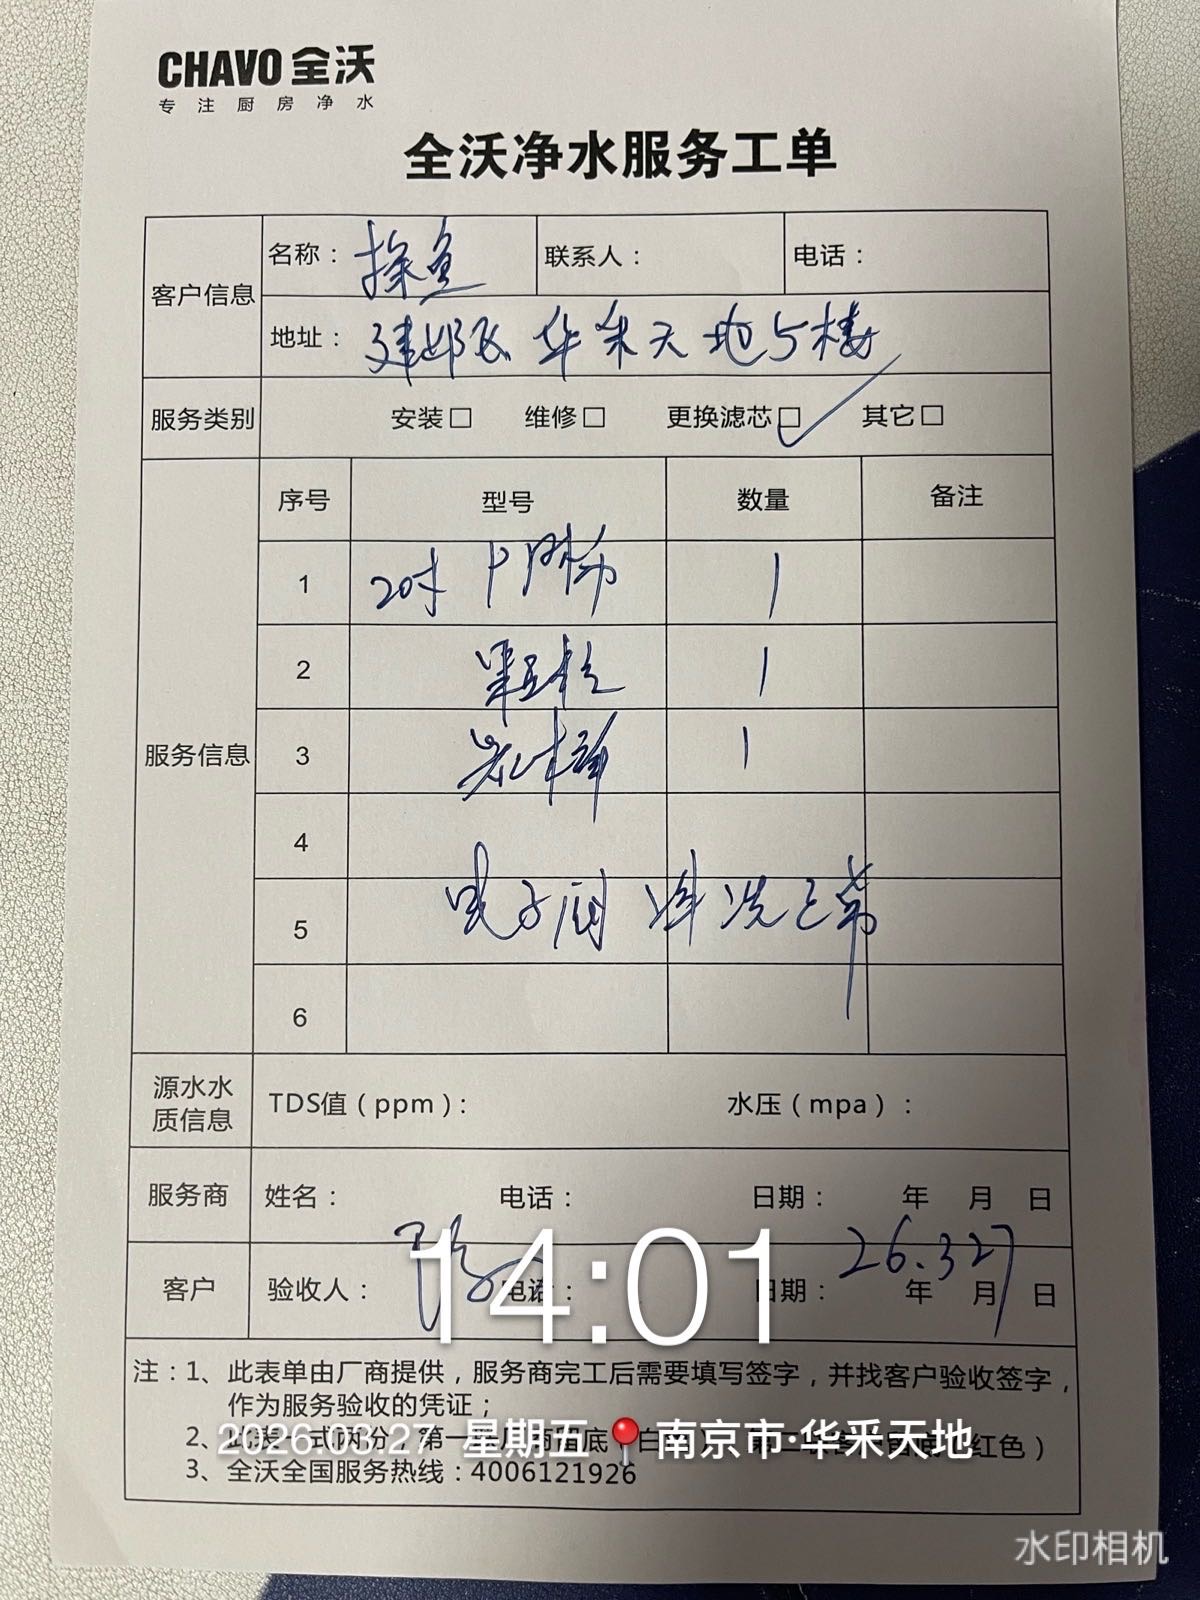 CHAVO 全沃
专注厨房净水
全沃净水服务工单
客户信息
名称： 探鱼 联系人： 电话：
地址： 建邺区华采天地5楼
服务类别 安装□ 维修□ 更换滤芯□ 其它□
服务信息
序号 型号 数量 备注
1 20寸 PP棉 1
2 颗粒 1
3 炭棒 1
4
5 电子阀 冲洗正常
6
源水水质信息 TDS值（ppm）： 水压（mpa）：
服务商 姓名： 电话： 日期： 年 月 日
客户 验收人： 电话： 日期： 26.3.27 年 月 日
14:01
注：1、此表单由厂商提供，服务商完工后需要填写签字，并找客户验收签字，
作为服务验收的凭证；
2、此表一式两份，第一
红色）
2026.03.27 星期五 南京市·华采天地
3、全沃全国服务热线：4006121926
水印相机